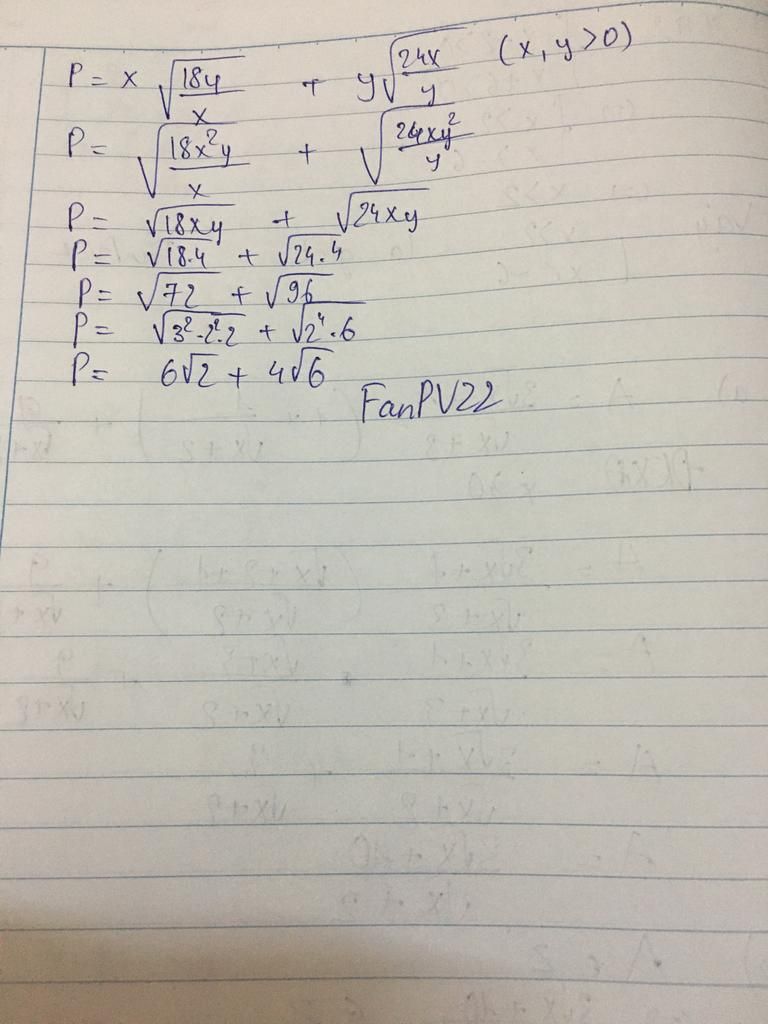 P = x √(18y/x) + y√(24x/y) (x, y > 0)
P = √(18x²y/x) + √(24xy²/y)
P = √18xy + √24xy
P = √18.4 + √24.4
P = √72 + √96
P = √3².2².2 + √2⁴.6
P = 6√2 + 4√6
FanPV22